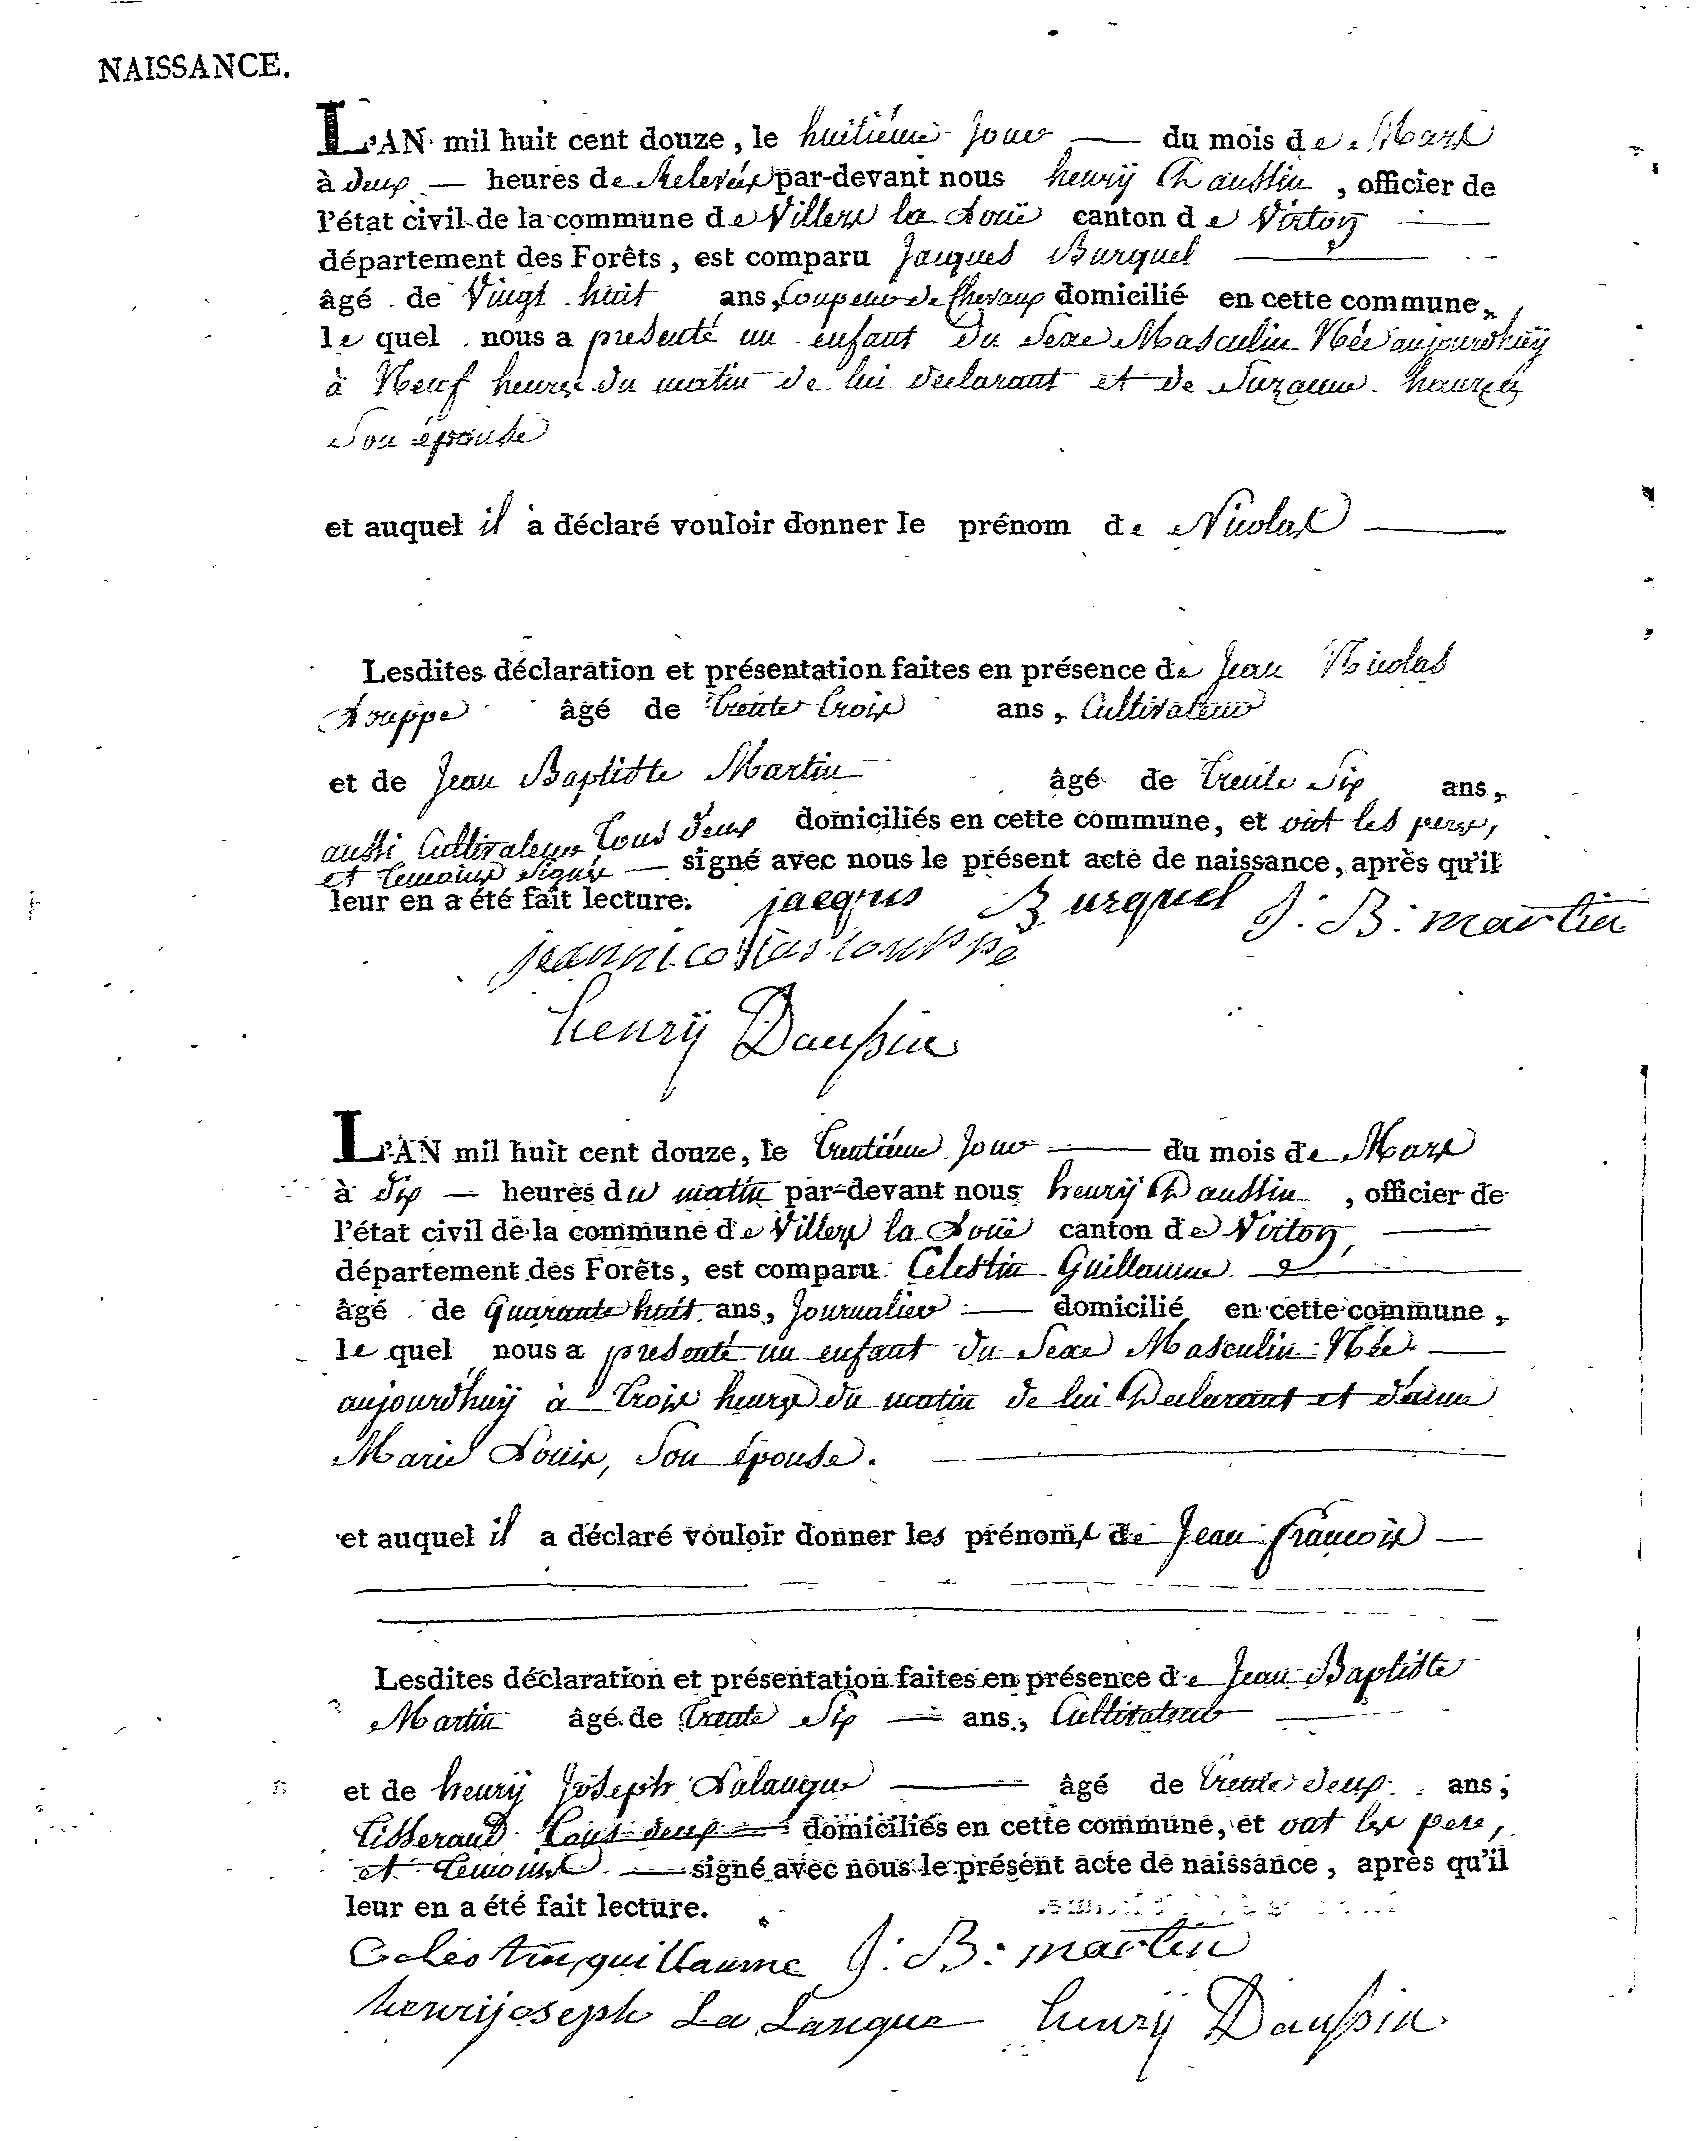 NAISSANCE.
L'AN mil huit cent douze, le huitiéme Jour — du mois de Mars
à deux — heures de Relevée par-devant nous henrÿ Daussin, officier de
l'état civil de la commune de Villers la Loüe canton de Virton —
département des Forêts, est comparu Jacques Burquel —
âgé de Vingt huit ans, Coupeur de Chevaux domicilié en cette commune,
le quel nous a presenté un enfant du Sexe Masculin Née aujourdhuÿ
à Neuf heures du matin de lui declarant et de Suzanne
Son épouse
et auquel il a déclaré vouloir donner le prénom de Nicolas —
Lesdites déclaration et présentation faites en présence de Jean Nicolas
Louppe âgé de trente trois ans, Cultivateur
et de Jean Baptiste Martin âgé de trente Six ans,
aussi Cultivateur, tous deux domiciliés en cette commune, et ont les pere,
et temoins signés — signé avec nous le présent acte de naissance, après qu'il
leur en a été fait lecture. jacques Burquel J : B : martin
jean nicollas louppe
henrÿ Daussin
L'AN mil huit cent douze, le trentiéme Jour — du mois de Mars
à dix — heures du matin par-devant nous henrÿ Daussin, officier de
l'état civil de la commune de Villers la Loüe canton de Virton, —
département des Forêts, est comparu Celestin Guillaume —
âgé de quarante huit ans, Journalier — domicilié en cette commune,
le quel nous a presenté un enfant du Sexe Masculin Née —
aujourdhuÿ à trois heures du matin de lui Declarant et d'anne
Marie Louis, Son épouse. —
et auquel il a déclaré vouloir donner les prénoms de Jean françois —
Lesdites déclaration et présentation faites en présence de Jean Baptiste
Martin âgé de trente Six — ans, Cultivateur —
et de henrÿ Joseph Lalangue — âgé de trente deux ans,
tisserand tous deux — domiciliés en cette commune, et ont les pere,
et temoins — signé avec nous le présent acte de naissance, après qu'il
leur en a été fait lecture.
Celestin guillaume J : B : martin
henrij joseph La Langue henrÿ Daussin